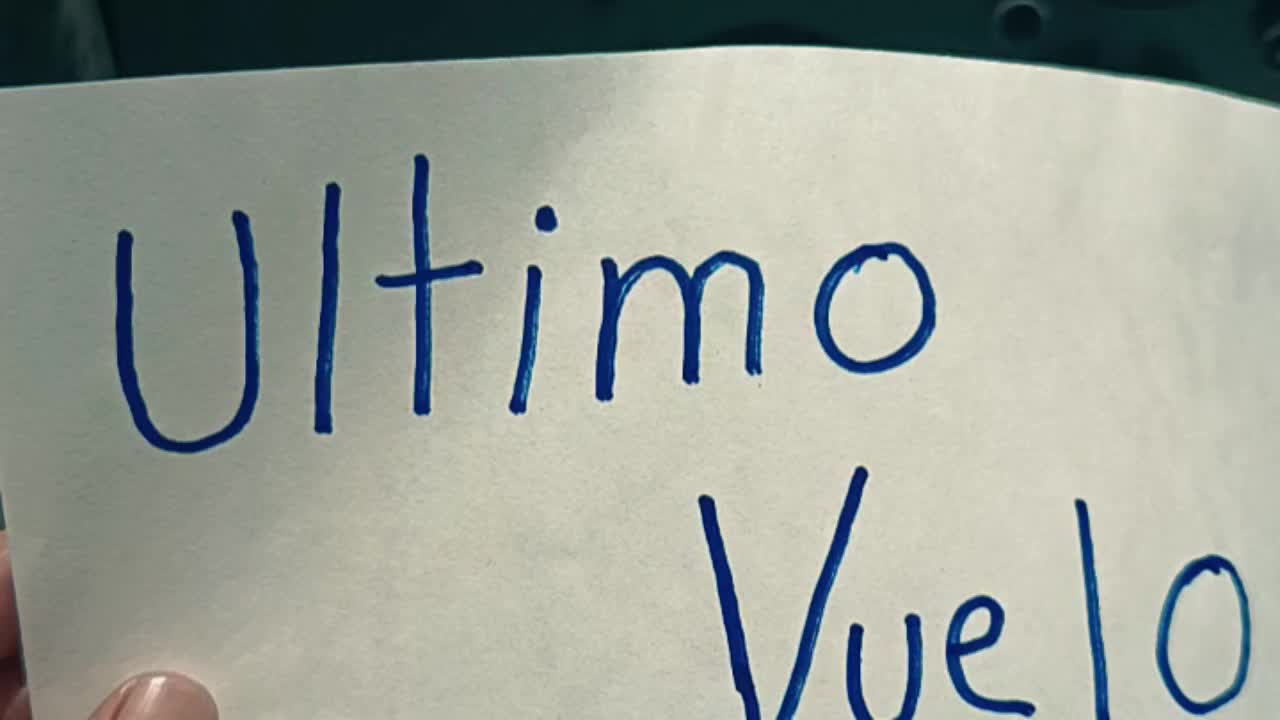 Ultimo
Vuelo